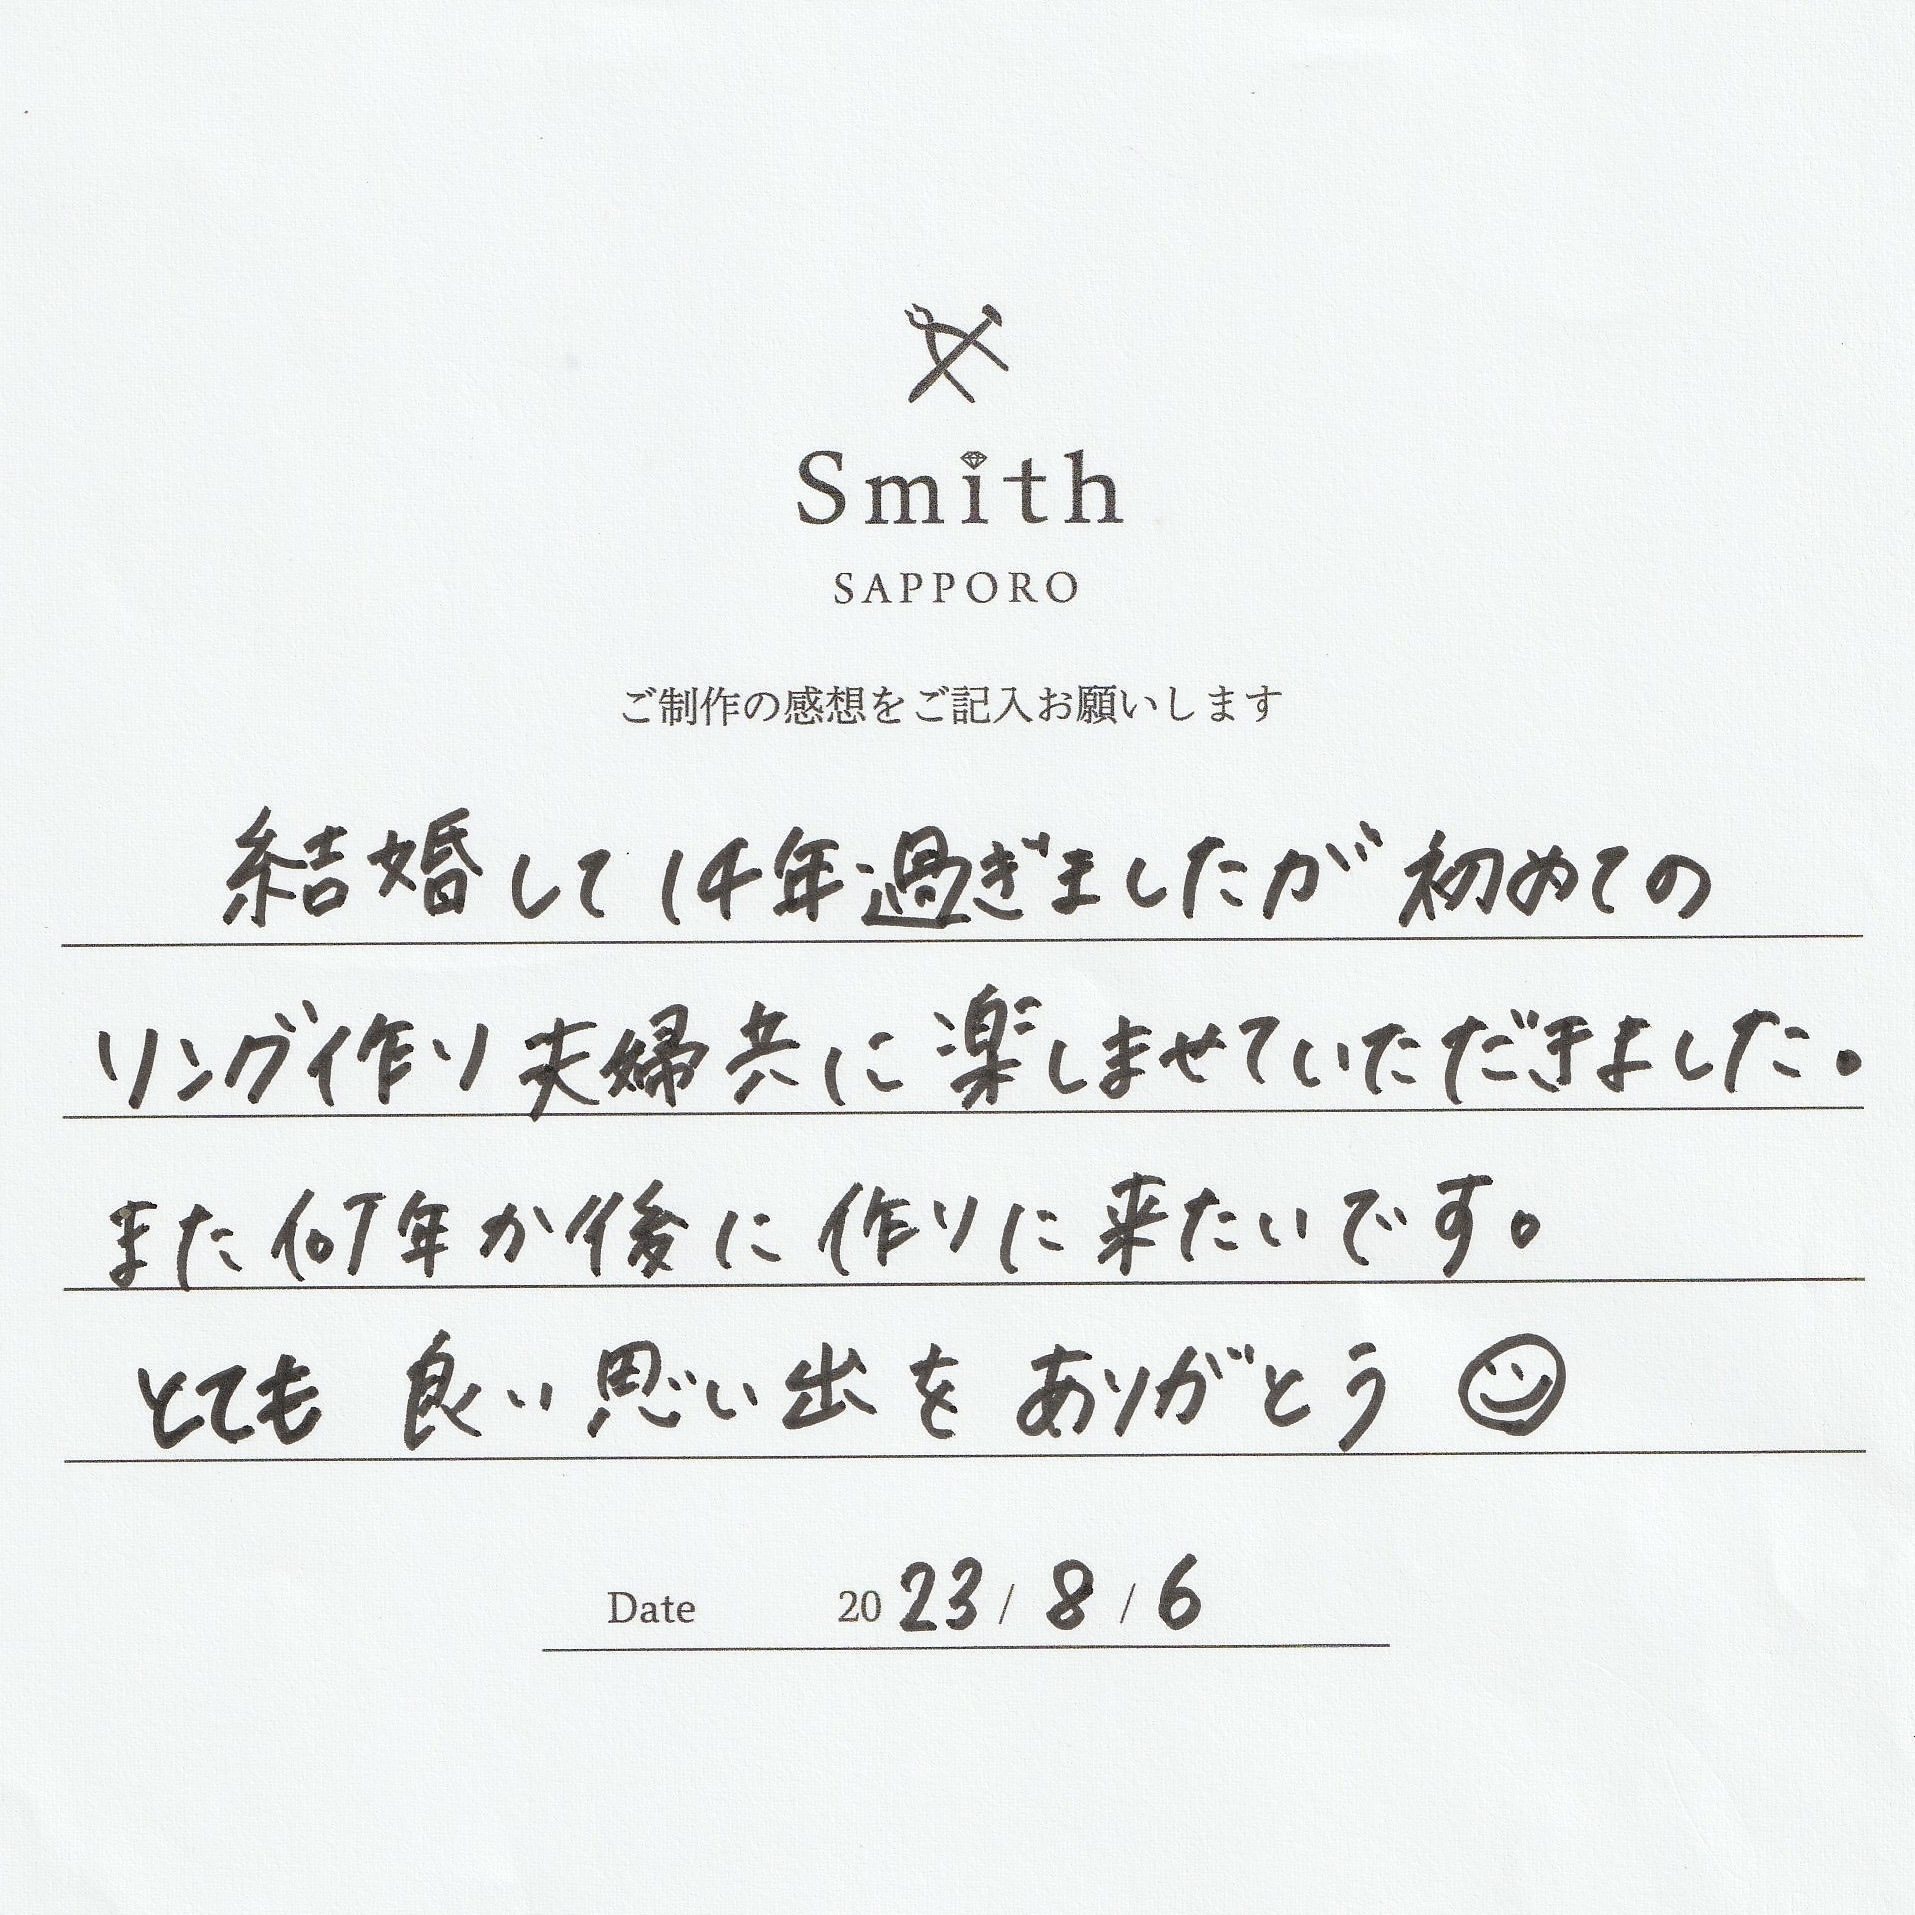 Smith
SAPPORO
ご制作の感想をご記入お願いします
結婚して14年過ぎましたが初めての
リング作り夫婦共に楽しませていただきました。
また何年か後に作りに来たいです。
とても良い思い出をありがとう☺
Date 2023/8/6